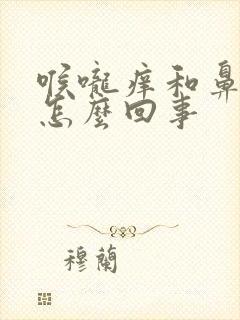 喉嚨痒和鼻
怎麼回事
穆蘭